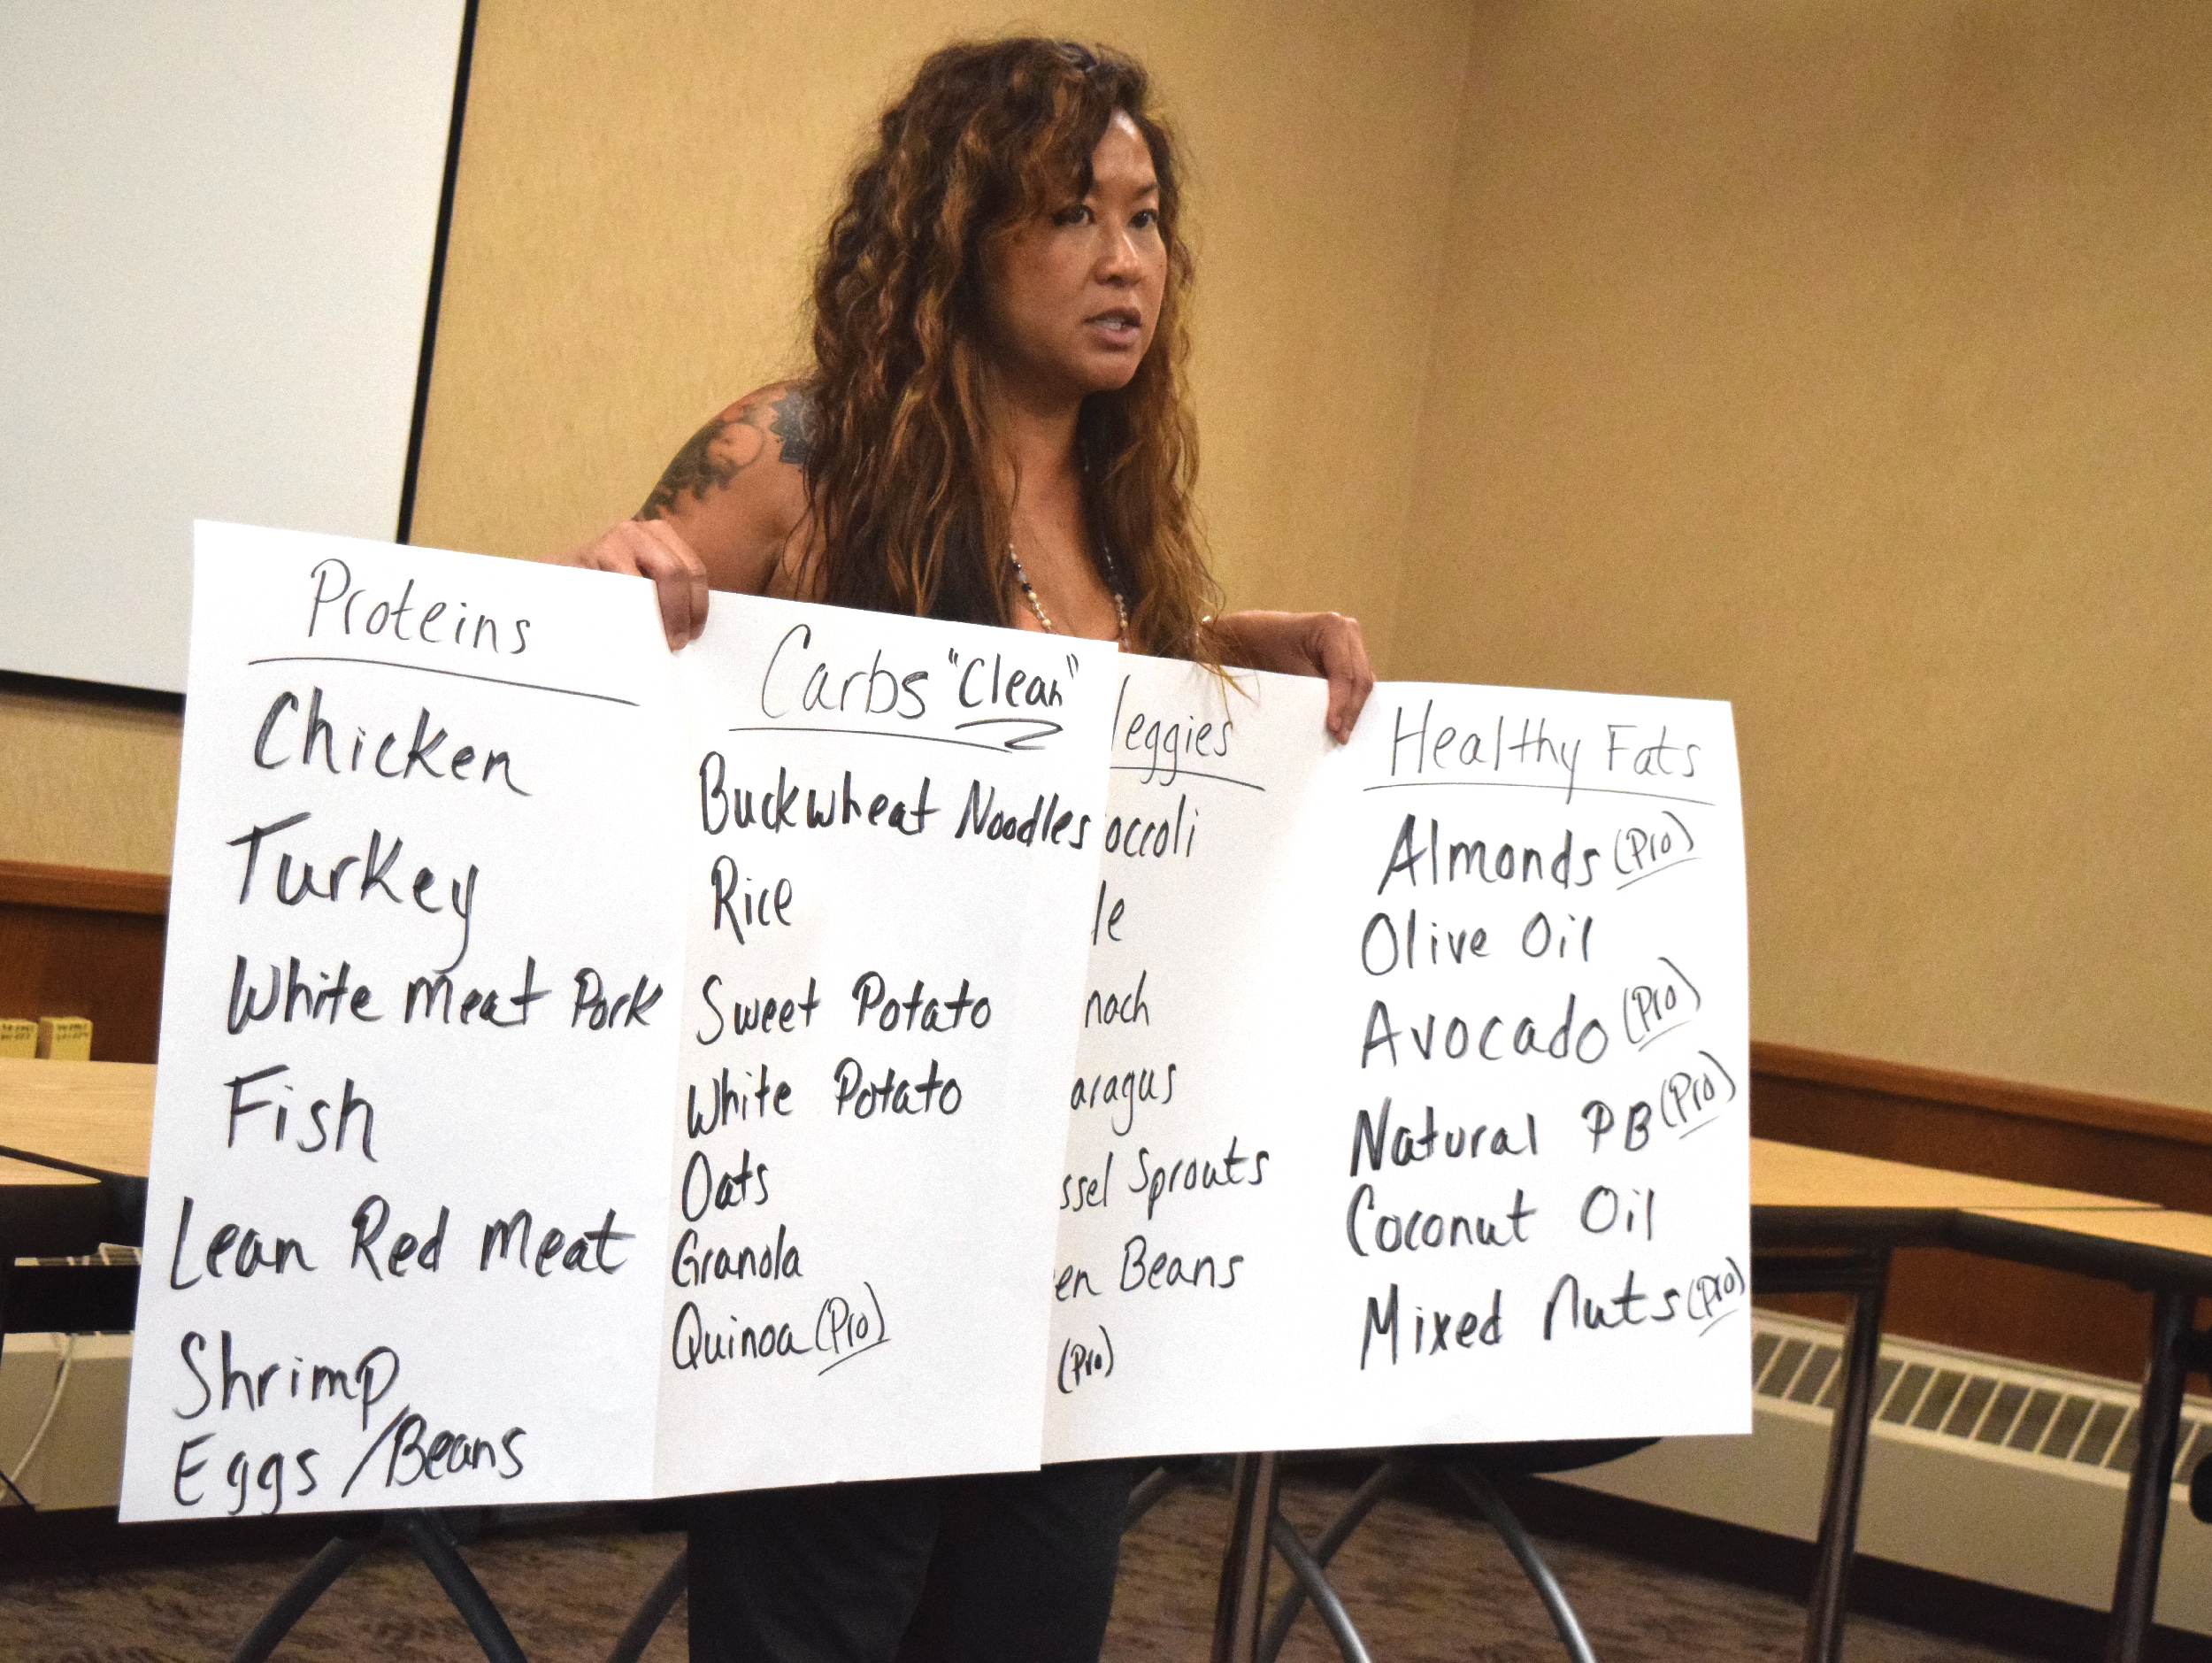 Proteins
Chicken
Turkey
White meat Pork
Fish
Lean Red meat
Shrimp
Eggs /Beans
Carbs "Clean"
Buckwheat Noodles
Rice
Sweet Potato
White Potato
Oats
Granola
Quinoa (Pro)
eggies
occoli
le
nach
aragus
ssel Sprouts
en Beans
(Pro)
Healthy Fats
Almonds (Pro)
Olive Oil
Avocado (Pro)
Natural PB (Pro)
Coconut Oil
Mixed Nuts (Pro)